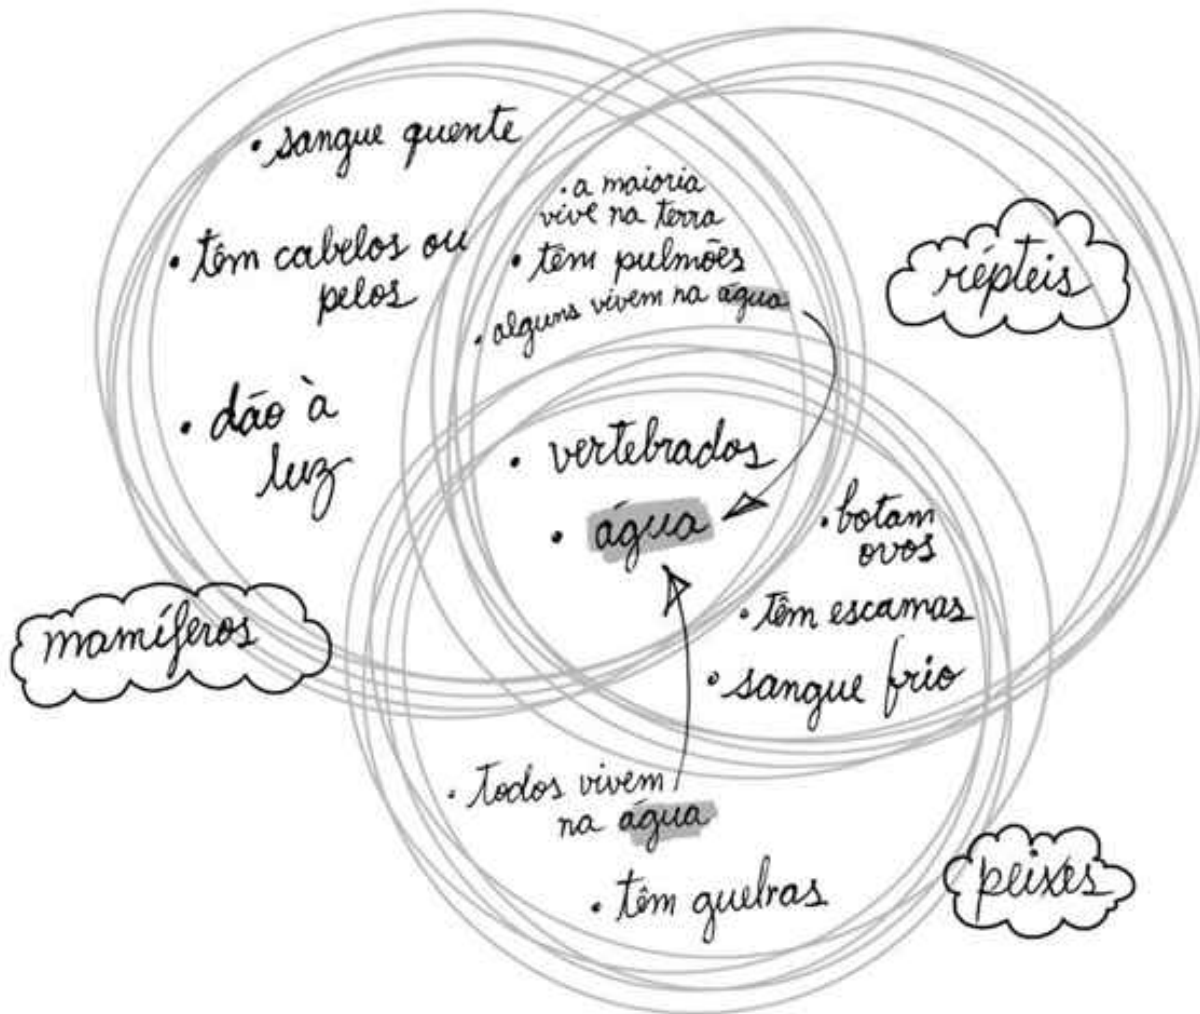 • sangue quente
• têm cabelos ou
pelos
• dão à
luz
mamíferos
• a maioria
vive na terra
• têm pulmões
• alguns vivem na água
répteis
• vertebrados
• água
• botam
ovos
• têm escamas
• sangue frio
• todos vivem
na água
• têm guelras
peixes